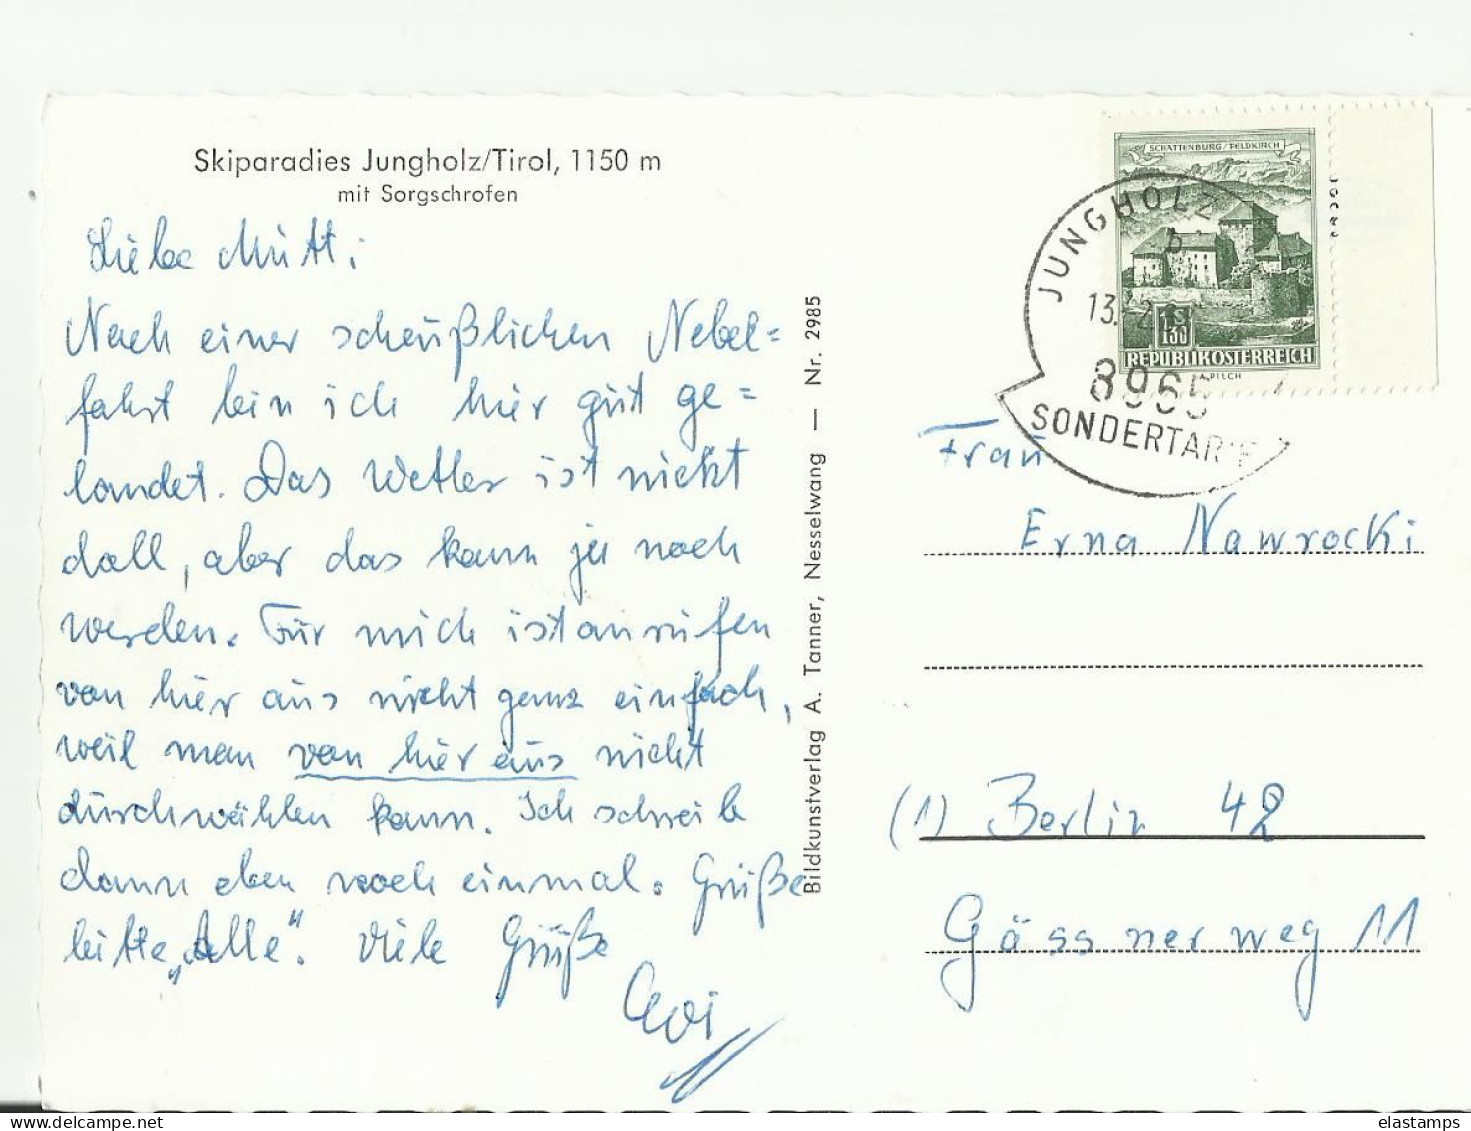 Skiparadies Jungholz/Tirol, 1150 m
mit Sorgschrofen
Liebe Mutt:
Nach einer scheußlichen Nebel=
fahrt bin ich hier gut ge=
landet. Das Wetter ist nicht
doll, aber das kann ja noch
werden. Für mich ist anrufen
von hier aus nicht ganz einfach,
weil man von hier aus nicht
durchwählen kann. Ich schreib
dann eben noch einmal. Grüße
bitte „Alle". Viele Grüße
Bildkunstverlag A. Tanner, Nesselwang — Nr. 2985
SCHATTENBURG/FELDKIRCH
S 1.30
REPUBLIK ÖSTERREICH
PILCH
JUNGHOLZ
b
13.
8965
SONDERTARIF
Frau
Erna Nawrocki
(1) Berlin 42
Gässnerweg 11
elastamps